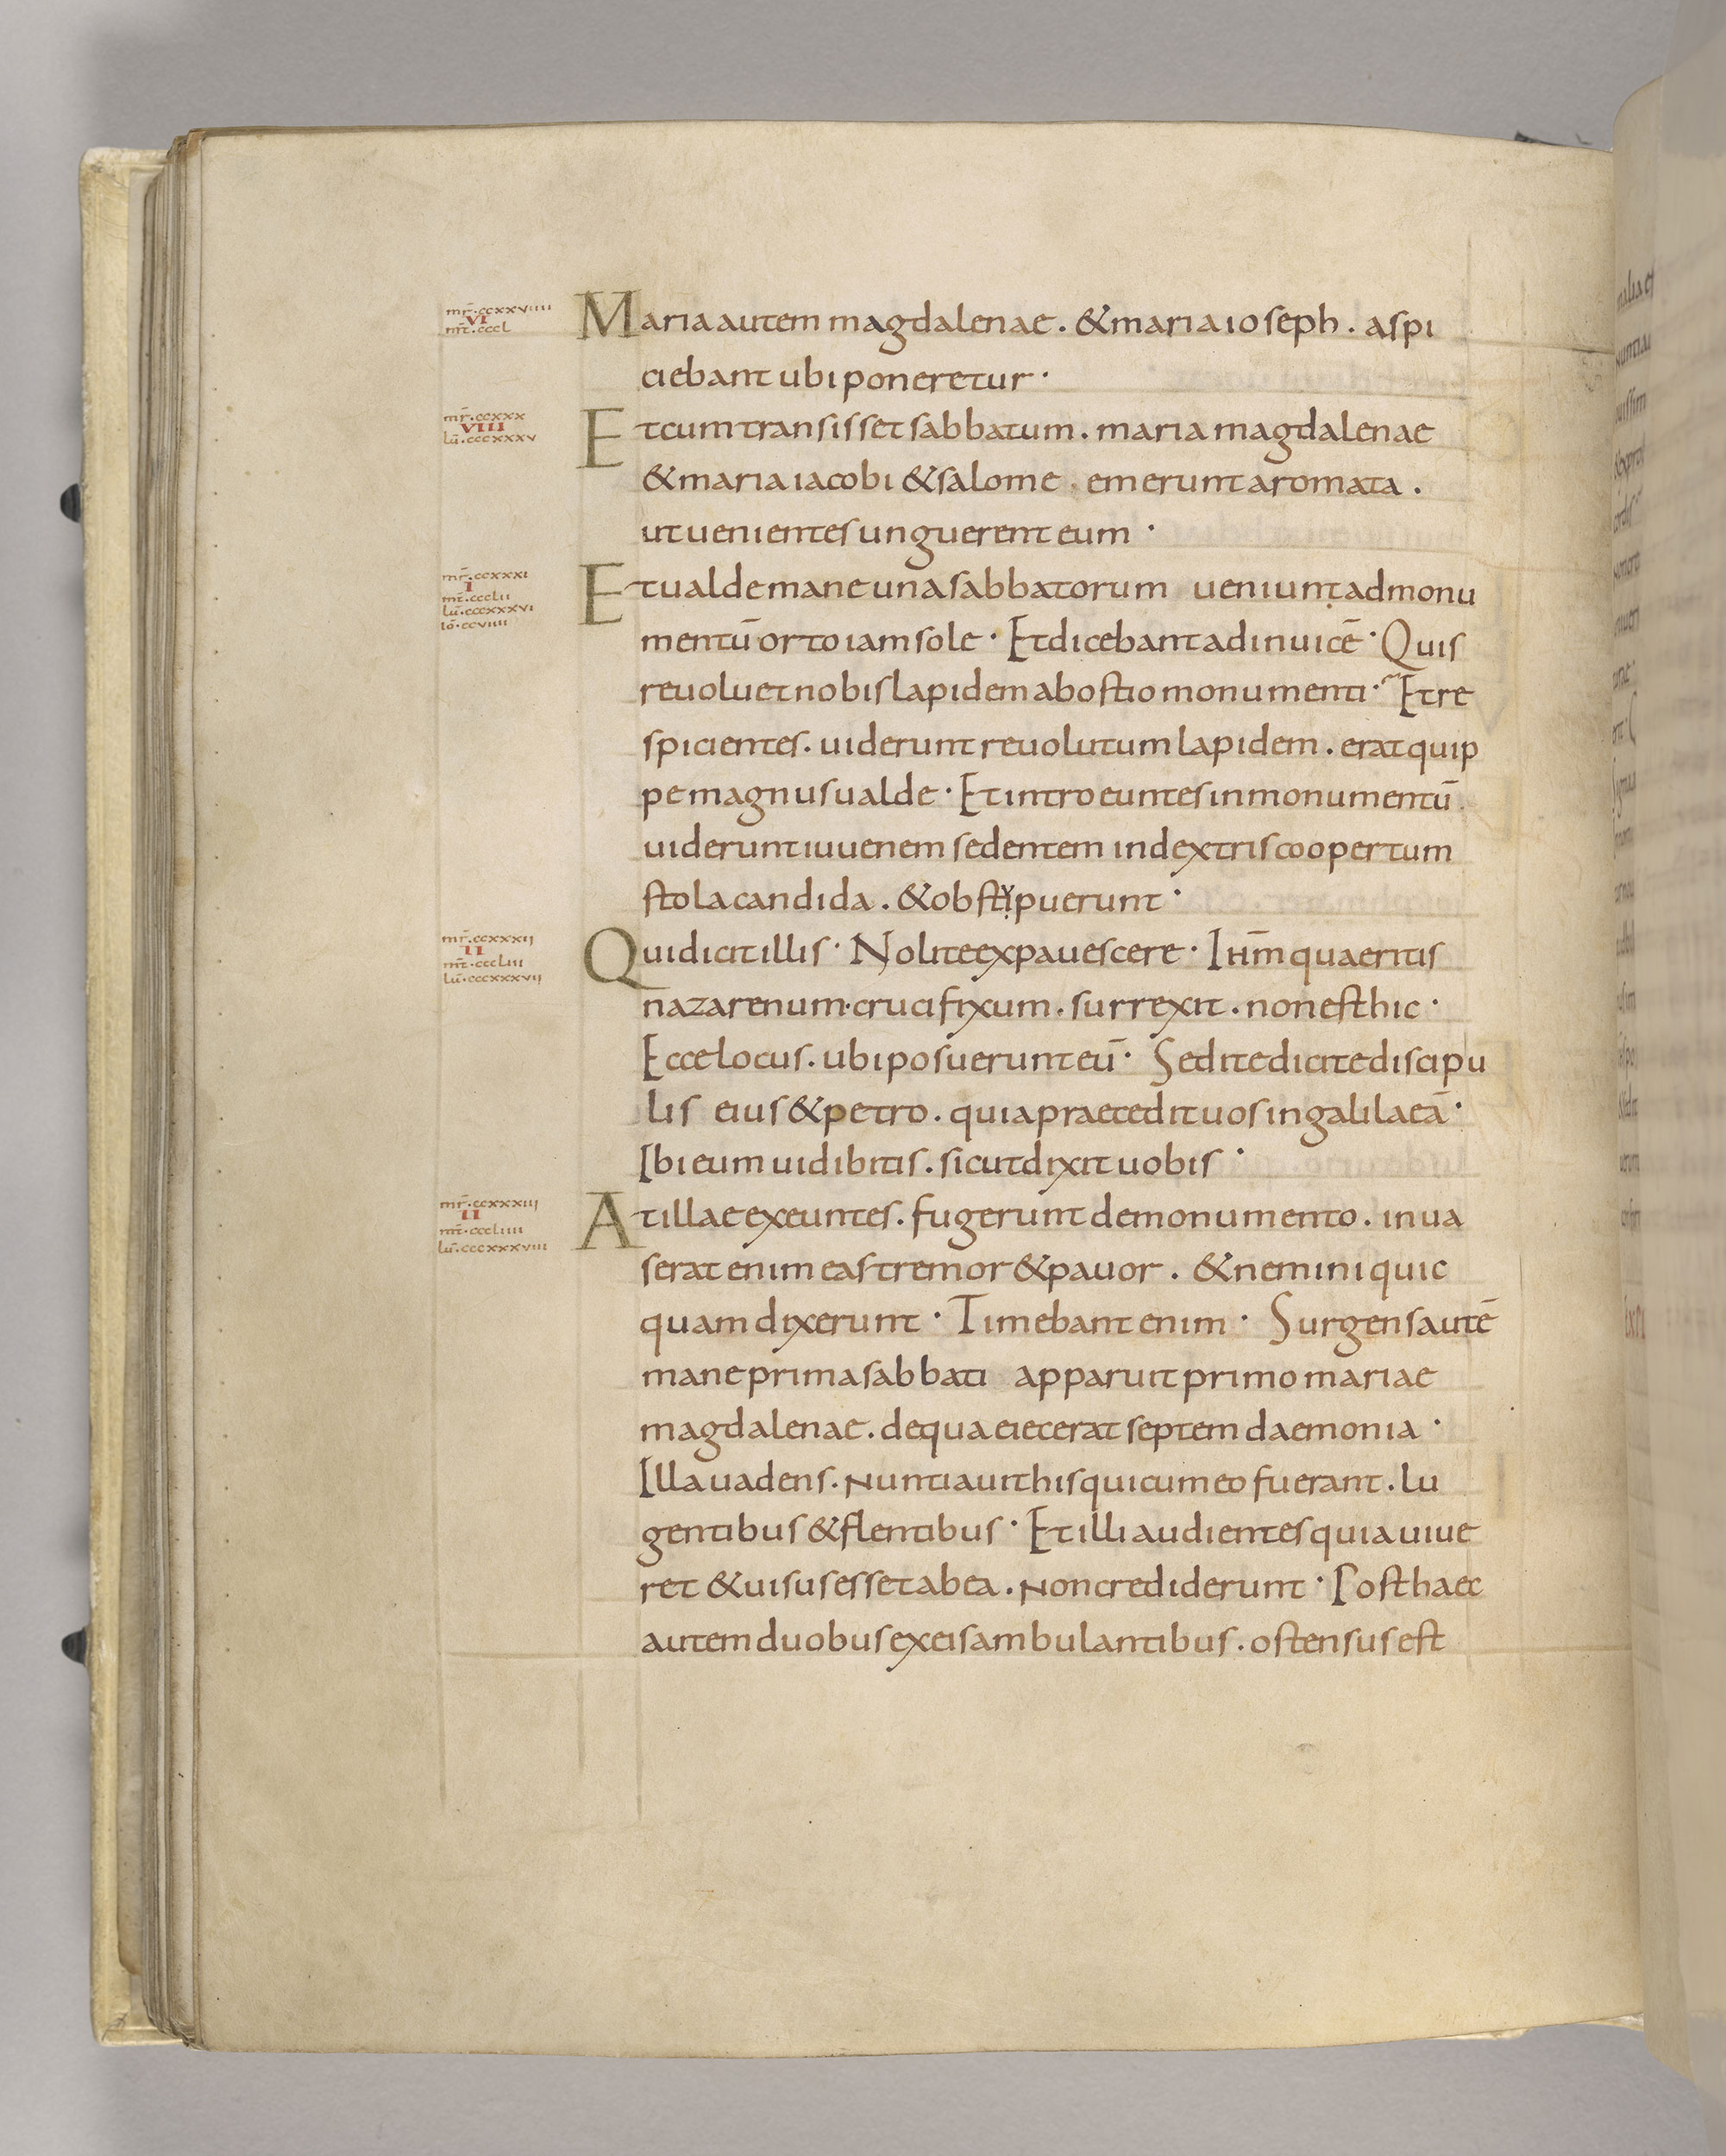 mr̄·ccxxviiii
VI
mt̄·cccl
Maria autem magdalenae. & maria ioseph. aspi
ciebant ubi poneretur·
mr̄·ccxxx
VIII
lū·cccxxxv
Et cum transisset sabbatum. maria magdalenae
& maria iacobi & salome. emerunt aromata.
ut uenientes unguerent eum·
mr̄·ccxxxi
I
mt̄·ccclii
lū·cccxxxvi
iō·ccviiii
Et ualde mane una sabbatorum ueniunt ad monu
mentū orto iam sole· Et dicebant ad inuicē· Quis
reuoluet nobis lapidem ab ostio monumenti· Et re
spicientes. uiderunt reuolutum lapidem. erat quip
pe magnus ualde· Et introeuntes in monumentū.
uiderunt iuuenem sedentem in dextris coopertum
stola candida. & obstipuerunt·
mr̄·ccxxxii
II
mt̄·cccliii
lū·cccxxxvii
Qui dicit illis· Nolite expauescere· Ihm̄ quaeritis
nazarenum·crucifixum. surrexit. non est hic·
Ecce locus. ubi posuerunt eū· Sed ite dicite discipu
lis eius & petro. quia praecedit uos in galilaeā·
Ibi eum uidibitis. sicut dixit uobis·
mr̄·ccxxxiii
II
mt̄·cccliiii
lū·cccxxxviii
At illae exeuntes. fugerunt de monumento. inua
serat enim eas tremor & pauor. & nemini quic
quam dixerunt· Timebant enim· Surgens autē
mane prima sabbati apparuit primo mariae
magdalenae. de qua eiecerat septem daemonia·
Illa uadens. nuntiauit his qui cum eo fuerant. lu
gentibus & flentibus· Et illi audientes quia uiue
ret & uisus esset ab ea. non crediderunt· Post haec
autem duobus ex eis ambulantibus. ostensus est